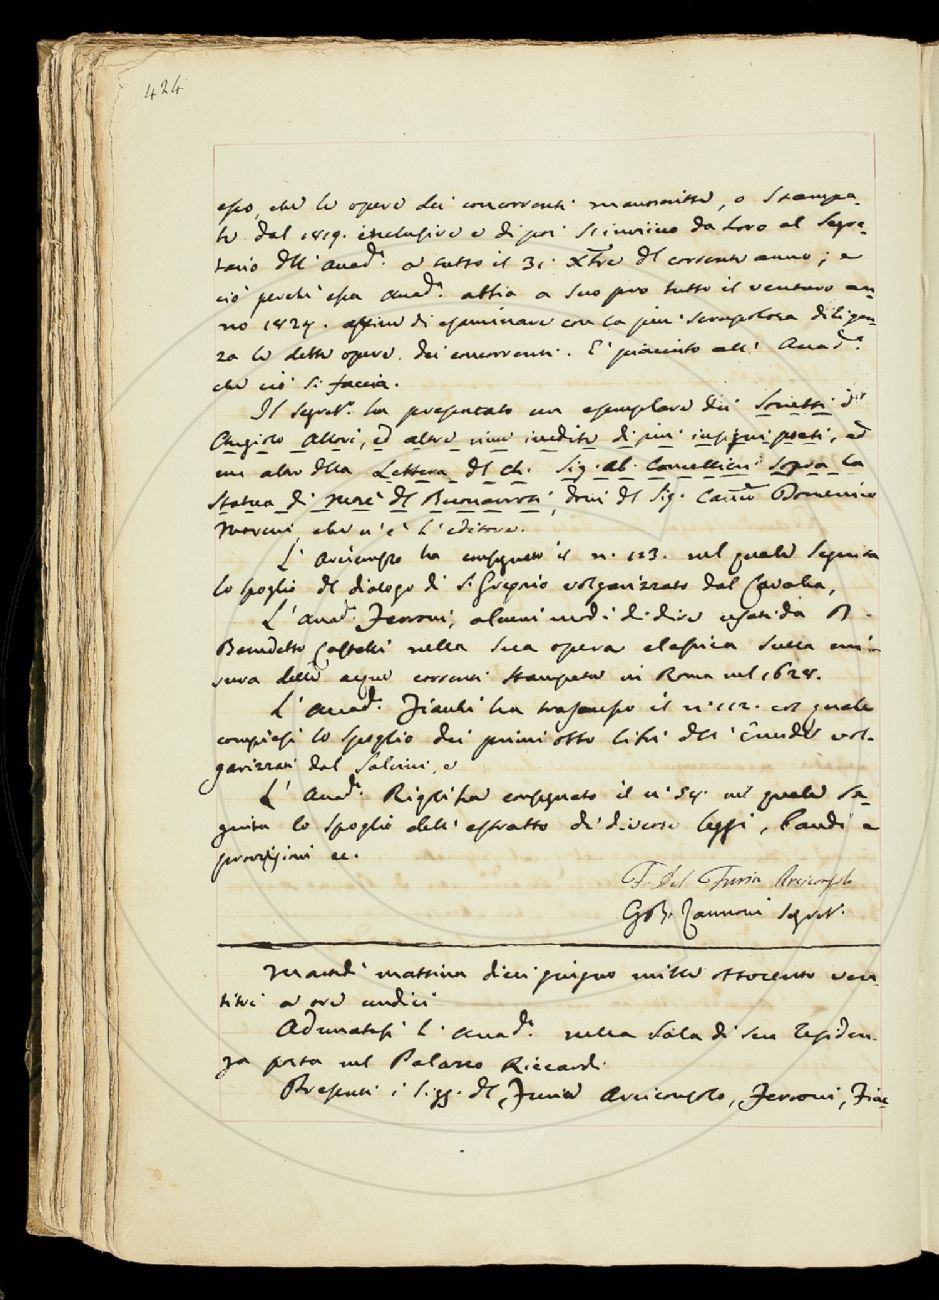 424
esso, che le opere dei concorrenti manoscritte, o stampa-
te dal 1819. inclusive e di poi si inviino da loro al Segre-
tario dell' Accad.ª a tutto il 31 Xbre del corrente anno; e
ciò perchè essa Accad.ª abbia a suo pro tutto il venturo an-
no 1824. affine di esaminare con la più scrupolosa diligen-
za le dette opere dei concorrenti. È piaciuto all' Accad.ª
che ciò si faccia.
Il Segret.º ha presentato un esemplare dei Sonetti d'
Angiolo Allori, ed altre rime inedite di più insigni poeti, ed
un altro della Lettera del Ch. Sig. Ab. Cancellieri sopra la
Statua di Mosè del Buonarroti, doni del Sig. Domenico
Moreni, che n'è l'editore.
L' Arciconsolo ha consegnato il n. 123. nel quale seguita
lo spoglio del dialogo di S. Gregorio volgarizzato dal Cavalca,
L' Accad. Ferroni, alcuni modi di dire usati da D.
Benedetto Castelli nella sua opera classica sulla mi-
sura delle acque correnti stampata in Roma nel 1628.
L' Accad. Fiacchi ha trasmesso il n. 112. col quale
compiesi lo spoglio dei primi otto libri dell' Eneide vol-
garizzati dal Salvini, e
L' Accad. Rigoli ha consegnato il n. 54. nel quale se-
guita lo spoglio dell' estratto di diverse leggi, bandi e
provvisioni ec.
F. Del Furia Arciconsolo
G. B. Zannoni Segret.
Martedì mattina dieci giugno mille ottocento ven-
titrè a ore undici
Adunatasi l' Accad.ª nella Sala di sua residen-
za posta nel Palazzo Riccardi
Presenti i Sigg. del Furia Arciconsolo, Ferroni, Fiac-